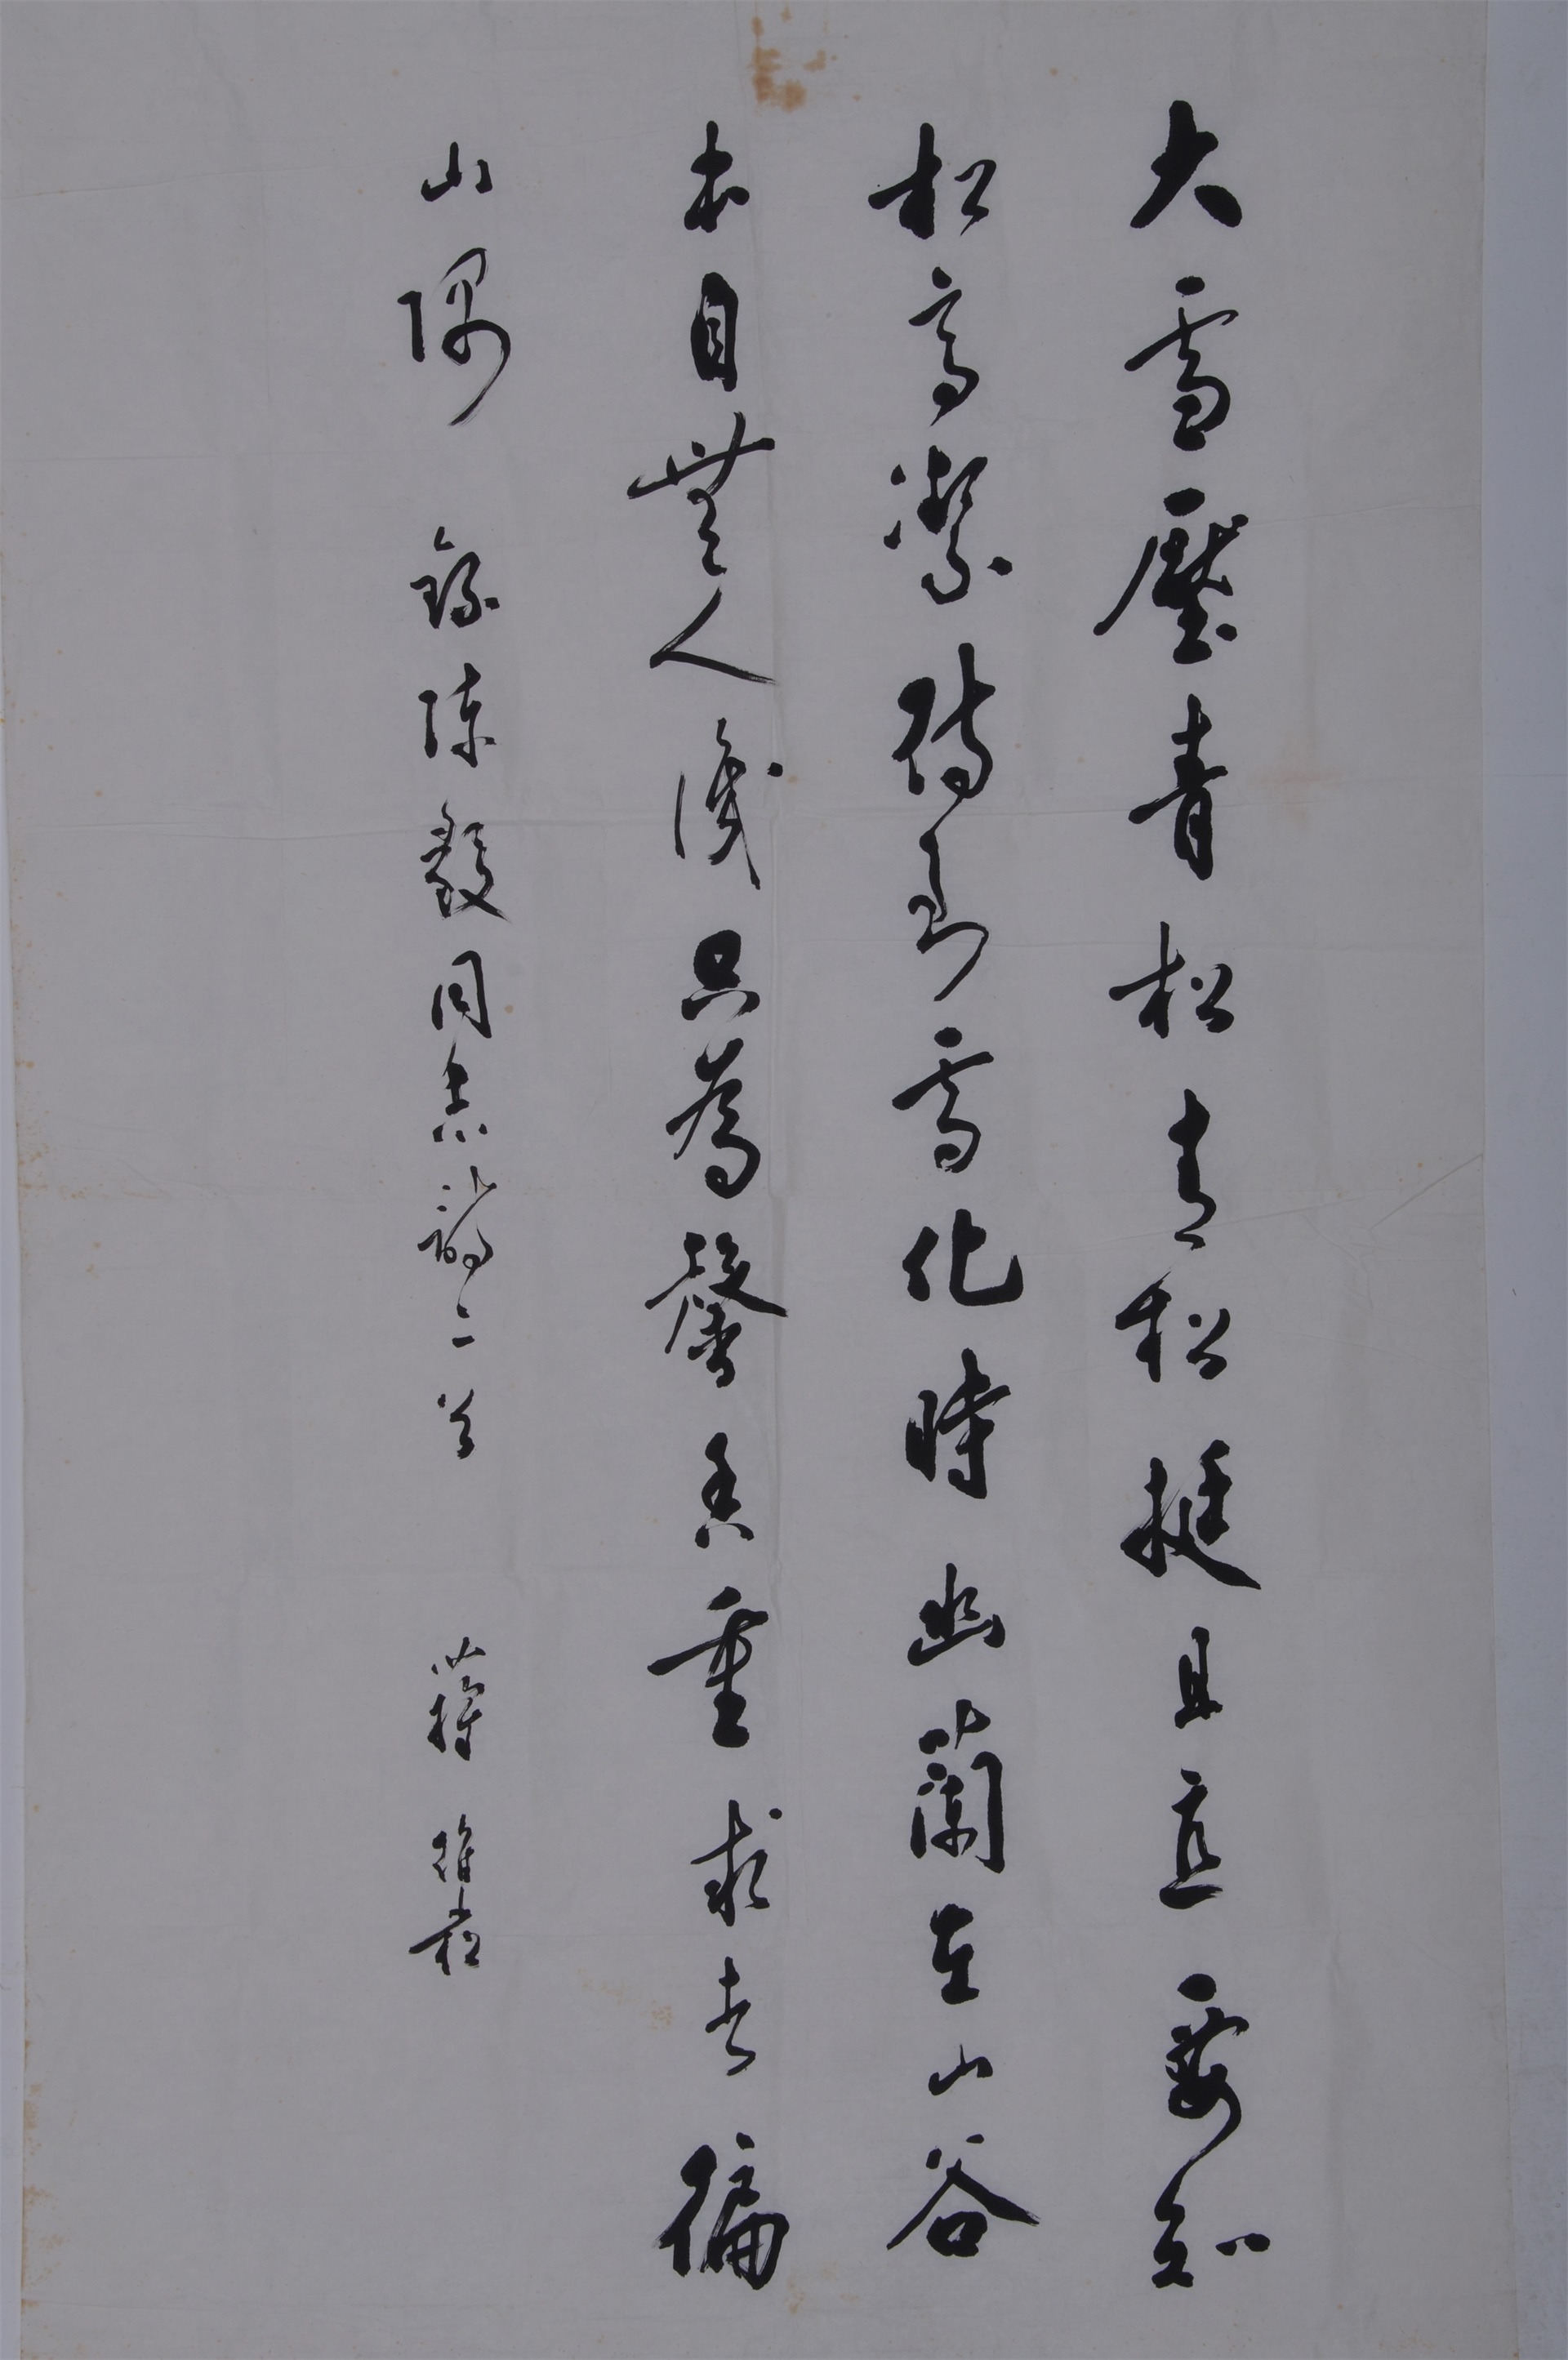 大雪壓青松青松挺且直要知
松高潔待到雪化時幽蘭在山谷
本自無人識只為馨香重求者徧
山隅 錄陳毅同志詩二首 蔣維崧